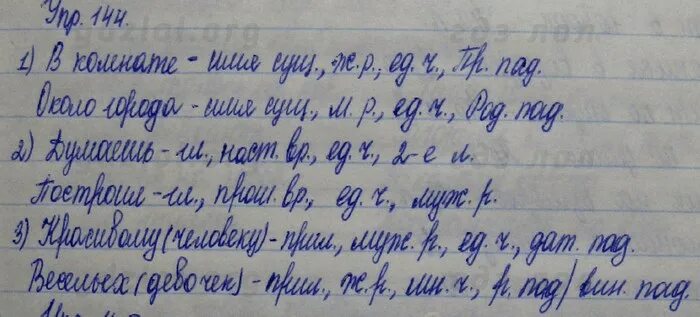 Упр. 144.
1) В комнате – имя сущ., ж.р., ед.ч., Пр. пад.
Около города – имя сущ., м.р., ед.ч., Род. пад.
2) Думаешь – гл., наст.вр., ед.ч., 2-е л.
Построил – гл., прош.вр., ед.ч., муж.р.
3) Красивому (человеку) – прил., муж.р., ед.ч., дат. пад.
Веселых (девочек) – прил., ж.р., мн.ч., р. пад/вин. пад.